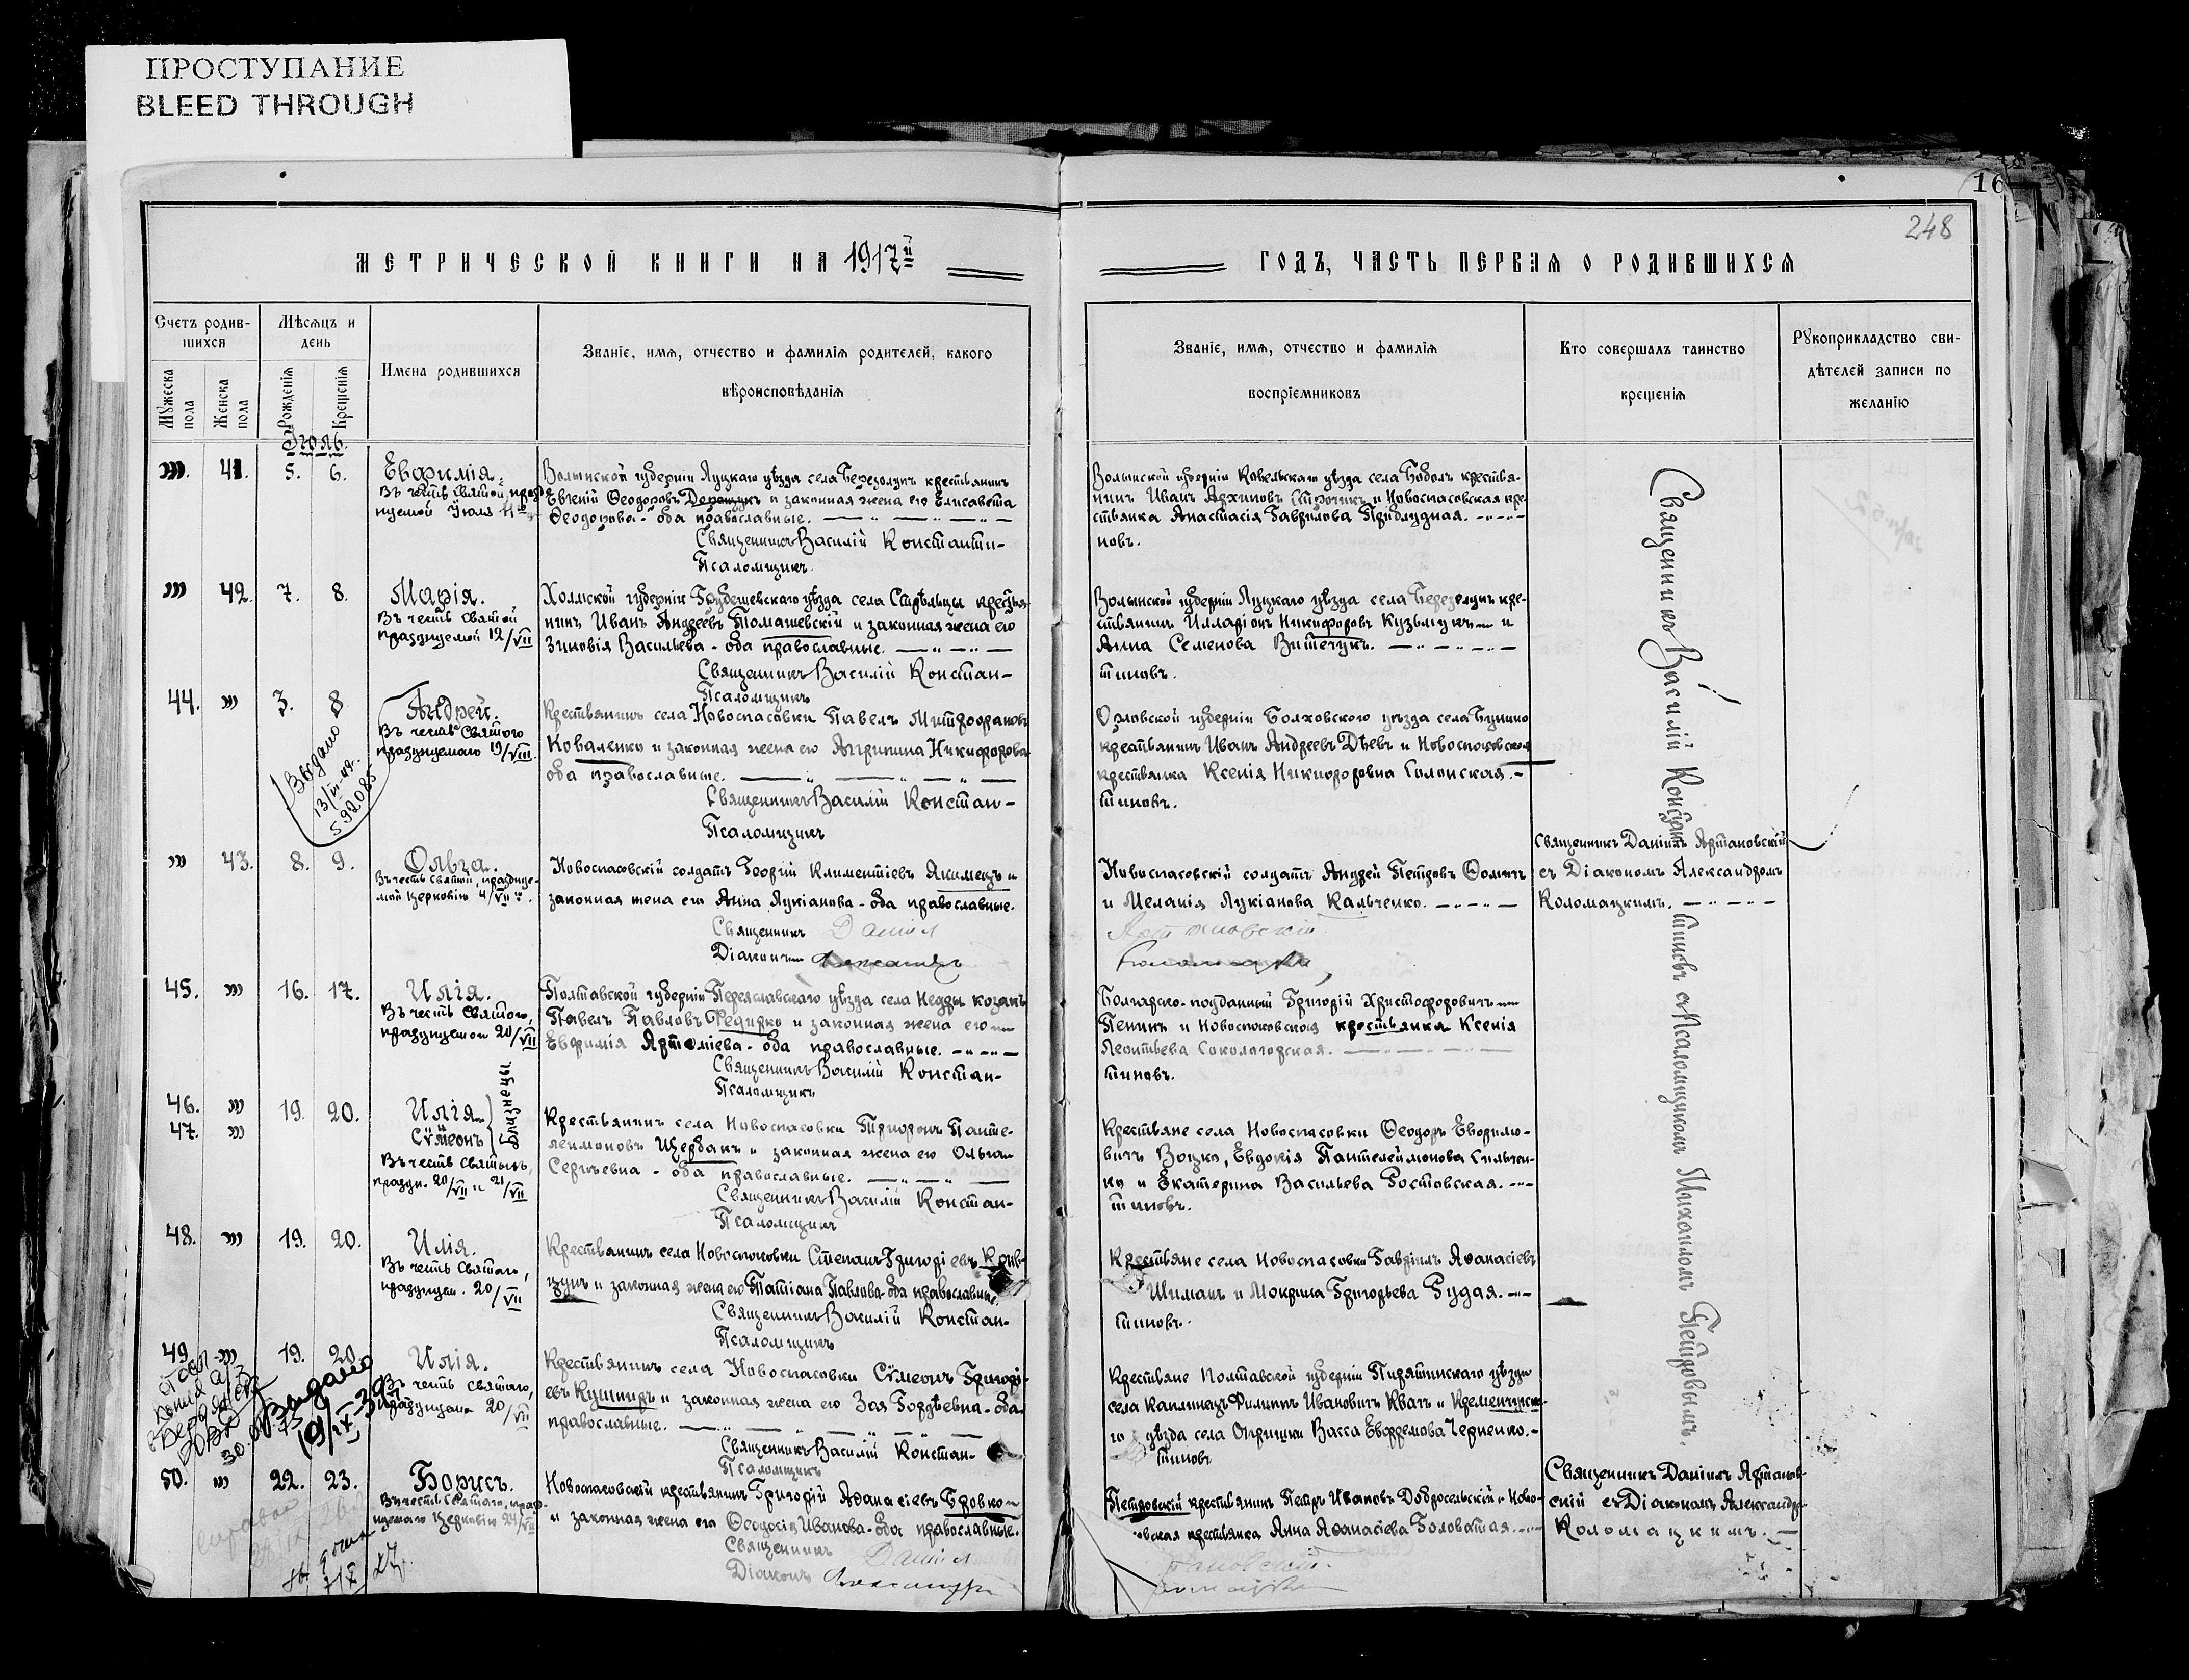 ПРОСТУПАНИЕ
BLEED THROUGH
16
248
МЕТРИЧЕСКОЙ КНИГИ НА 1917й
ГОДЪ, ЧАСТЬ ПЕРВАЯ О РОДИВШИХСЯ
Счетъ родив-
шихся
Мѣсяцъ и
день
Мужеска
пола
Женска
пола
Рожденія
Крещенія
Имена родившихся
Званіе, имя, отчество и фамилія родителей, какого
вѣроисповѣданія
Званіе, имя, отчество и фамилія
воспріемниковъ
Кто совершалъ таинство
крещенія
Рукоприкладство сви-
дѣтелей записи по
желанію
Іюль.
41. 5. 6. Евфимія.
Въ честь святой, празд-
нуемой Іюля 11го
Волынской губерніи Луцкаго уѣзда села Березолупъ крестьянинъ
Евгеній Ѳеодоровъ и законная жена его Елисавета
Ѳеодорова - оба православные.
Священникъ Василій Константи-
Псаломщикъ.
Волынской губерніи Ковельскаго уѣзда села крестья-
нинъ Иванъ Архиповъ и Новоспасовская кре-
стьянка Анастасія Гаврилова Приблудная.
новъ.
42. 7. 8. Марія.
Въ честь святой
празднуемой 12/VII
Холмской губерніи Грубешевскаго уѣзда села Стрѣльцы крестья-
нинъ Иванъ Андреевъ Томашевскій и законная жена его
Зиновія Васильева - оба православные.
Священникъ Василій Констан-
Псаломщикъ
Волынской губерніи Луцкаго уѣзда села Березолупъ кре-
стьянинъ Илларіонъ Никифоровъ Кузьмукъ и
Анна Семенова Витечукъ.
тиновъ.
44. 3. 8 Андрей.
Въ честь святого
празднуемаго 19/VIII
Выдано
13/III 44г.
592085
Крестьянинъ села Новоспасовки Павелъ Митрофановъ
Коваленко и законная жена его Агрипина Никифорова
оба православные.
Священникъ Василій Констан-
Псаломщикъ
Орловской губерніи Болховского уѣзда села Бунино
крестьянинъ Иванъ Андреевъ Дѣевъ и Новоспасовская
крестьянка Ксенія Никифоровна Солонская.
тиновъ.
43. 8. 9. Ольга.
Въ честь святой, праздну-
мой Церковію 11/VII го.
Новоспасовскій солдатъ Георгій Климентіевъ Якименъ и
законная жена его Анна Лукіанова - оба православные.
Священникъ Даніил
Діаконъ Александръ
Новоспасовскій солдатъ Андрей Петровъ Ѳоминъ
и Меланія Лукіанова Кальченко.
Артановскій
Коломацкій
Священникъ Даніилъ Артановскій
съ Діакономъ Александромъ
Коломацкимъ.
45. 16. 17. Илія.
Въ честь святого,
празднуемом 20/VII
Полтавской губерніи Переяславскаго уѣзда села Недры козакъ
Павелъ Павловъ Федирко и законная жена его
Евфимія Артеміева - оба православные.
Священникъ Василій Констан-
Псаломщикъ
Болгарско-подданный Григорій Христофоровичъ
Пенинъ и Новоспасовская крестьянка Ксенія
Леонтьева Сокологорская.
тиновъ.
46. 19. 20. Илія
47. Сѵмеонъ
близнецы
Въ честь святыхъ,
праздн. 20/VII и 21/VII
Крестьянинъ села Новоспасовки Трифонъ Панте-
леимоновъ Щербакъ и законная жена его Ольга
Сергѣевна - оба православные.
Священникъ Василій Констан-
Псаломщикъ
Крестьяне села Новоспасовки Ѳеодоръ Евфимо-
вичъ Воцко, Евдокія Пантелеймонова Сильчен-
ко и Екатерина Васильева Ростовская.
тиновъ.
48. 19. 20. Илія.
Въ честь святаго,
празднуем. 20/VII
Крестьянинъ села Новоспасовки Степанъ Григоріевъ Крив-
цунъ и законная жена его Татіана Павлова - оба православные
Священникъ Василій Констан-
Псаломщикъ
Крестьяне села Новоспасовки Гавріилъ Аѳанасіевъ
Шиманъ и Мокрина Григорьева Рудая.
тиновъ.
49. 19. 20 Илія.
Въ честь святаго,
празднуемаго 20/VII
Выдано
Крестьянинъ села Новоспасовки Сѵмеонъ Григорі-
евъ Кушниръ и законная жена его Зоя Гордѣевна - оба
православные.
Священникъ Василій Констан-
Псаломщикъ
Крестьяне Полтавской губерніи Пирятинскаго уѣзда
села Каплинцъ Филиппъ Ивановичъ Квачъ и Кременчугска-
го уѣзда села Опришки Васса Евфремова Черненко.
тиновъ
50. 22. 23. Борисъ.
Въ честь святаго, празд-
нуемаго Церковію 24/VII
Новоспасовскій крестьянинъ Григорій Аѳанасіевъ Бровко
и законная жена его Ѳеодосія Иванова - оба православные.
Священникъ Даніил
Діаконъ Александръ
Петровскій крестьянинъ Петръ Ивановъ Добросельскій и Ново-
вская крестьянка Анна Аѳанасіева Головатая.
Священникъ Даніилъ Артанов-
скій съ Діакономъ Александр-
Коломацкимъ.
Священникъ Василій Констан-
тиновъ съ Псаломщикомъ Михаиломъ Гейдовымъ.